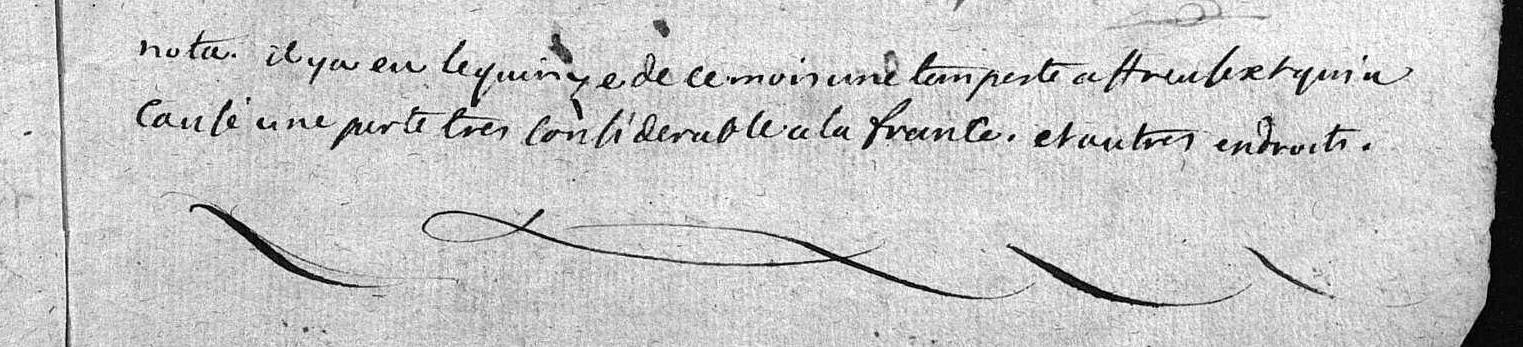 nota. il ya eu le quinzye de ce mois une tempeste affreuse et qui a
Causé une perte tres Considerable a la france. et autres endroits.